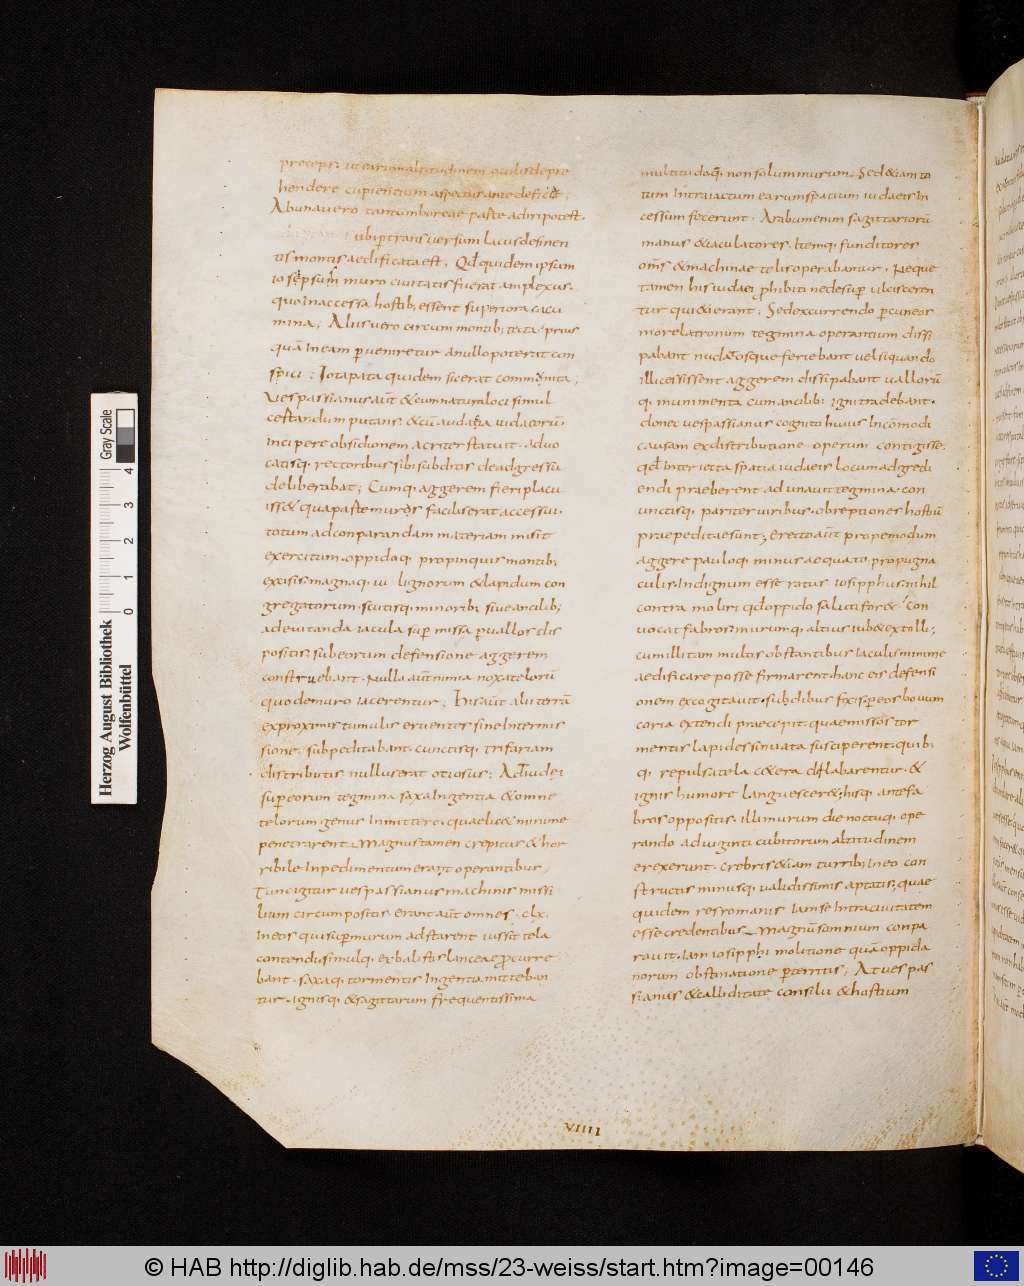 precepſ; ut earum altitudinem oculiſ depre
hendere cupientium aſpectuſ ante deficiat.
Ab una uero tantum boreae parte adiri poteſt.
ubi per tranſuerſum lacuſ deſinen
tiſ montiſ aedificata eſt; Qđ quidem ipſum
ioſepſum muro ciuitatiſ fuerat amplexuſ.
quo inacceſſa hoſtib; eſſent ſuperiora cacu
mina; Aliiſ uero circum montib; tecta. priuſ
quā in eam perueniretur a nullo poterat con
ſpici; Iotapata quidem ſic erat communita;
Veſpaſianuſ aūt & cum natura loci ſimul
certandum putanſ. & cū audatia iudaeorū.
incipere obſidionem acriter ſtatuit. aduo
catiſq; rectoribuſ ſibi ſubditiſ de adgreſſu
deliberabat; Cumq; aggerem fieri placu
iſſ& qua parte muroſ faciliſ erat acceſſuſ.
totum ad conparandam materiam miſit
exercitum. oppidoq; propinquiſ montib;
exciſiſ. magnaq; ui lignorum & lapidum con
gregatorum. ſcutiſq; minorib; ſiue ancilib;
ad euitanda iacula ſup miſſa p̱ ualloſ diſ
poſitiſ. ſub eorum defenſione aggerem
conſtruebant. Nulla aūt nimia noxa telorū
quo de muro iacerentur; Hiſ aūt alii terrā
ex proximiſ tumuliſ eruenteſ ſine intermiſ
ſione. ſubpeditabant. cunctiſq; trifariam
diſtributiſ nulluſ erat otioſuſ; Ad iudei
ſup eorum tegmina ſaxa ingentia & omne
telorum genuſ inmittere. quae lic& minime
penetrarent. Magnuſ tamen crepituſ & hor
ribile inpedimentum erant operantibuſ;
Tunc igitur ueſpaſſianuſ machiniſ miſſi
lium circumpoſitiſ. erant aūt omneſ. clx.
in eoſ qui ſup murum adſtarent iuſſit tela
contendi. ſimulq; ex baliſtiſ lanceae procurre
bant. ſaxaq; tormentiſ ingentia mitteban
tur. igniſq; & ſagittarum frequentiſſima
multitudo. q; non ſolum murum. Sed &iam to
tum intra iactum earum ſpatium iudaeiſ in
ceſſum fecerunt. Arabum enim ſagittariorū
manuſ & iaculatoreſ. itemq; funditoreſ
om̄ſ & machinae teliſ operabantur. Neque
tamen hiſ iudaei prohibiti ne deſup ulciſceren
tur quieuerant; Sed excurrendo p cuneoſ
more latronum tegmina operantium diſſi
pabant nudatoſque feriebant uel ſi quando
illi ceſſiſſent aggerem diſſipabant uallorū
q; munimenta cum ancilib; igni tradebant.
donec ueſpaſſianuſ cognito huiuſ incomodi
cauſam ex diſtributione operum contigiſſe.
qđ interiecta ſpatia iudaeiſ locum adgredi
endi praeberent adunauit tegmina. con
iunctiſq; pariter uiribuſ. obreptioneſ hoſtiū
praepeditae ſunt; erecto aūt propemodum
aggere pauloq; minuſ aequato. propugna
culiſ. indignum eſſe ratuſ ioſipphuſ. nihil
contra moliri qđ oppido ſaluti for&. con
uocat fabroſ. murumq; altiuſ iub& extolli;
cum illi tam multiſ obſtantibuſ iaculiſ minime
aedificare poſſe firmarent. hanc eiſ defenſi
onem excogitauit. ſudibuſ fixiſ. p eoſ bouum
coria extendi praecepit. quae miſſoſ tor
mentiſ lapideſ ſinuata ſuſciperent. quib.
q; repulſa tela c&era dilabarentur. &
igniſ humore langueſcer&. hiſq; ante fa
broſ oppoſitiſ. illi murum die noctuq; ope
rando ad uiginti cubitorum altitudinem
erexerunt. crebriſ &iam turrib; in eo con
ſtructiſ minuſq; ualidiſſimiſ aptatiſ. quae
quidem reſ romaniſ iam ſe intra ciuitatem
eſſe credentibuſ. Magnū ſomnium conpa
rauit. iam ioſipphi molitione quā oppida
norum obſtinatione perterrituſ; At ueſpaſ
ſianuſ & calliditate conſilii & hoſtium
VIIII
Herzog August Bibliothek
Wolfenbüttel
Gray Scale
0 1 2 3 4
© HAB http://diglib.hab.de/mss/23-weiss/start.htm?image=00146